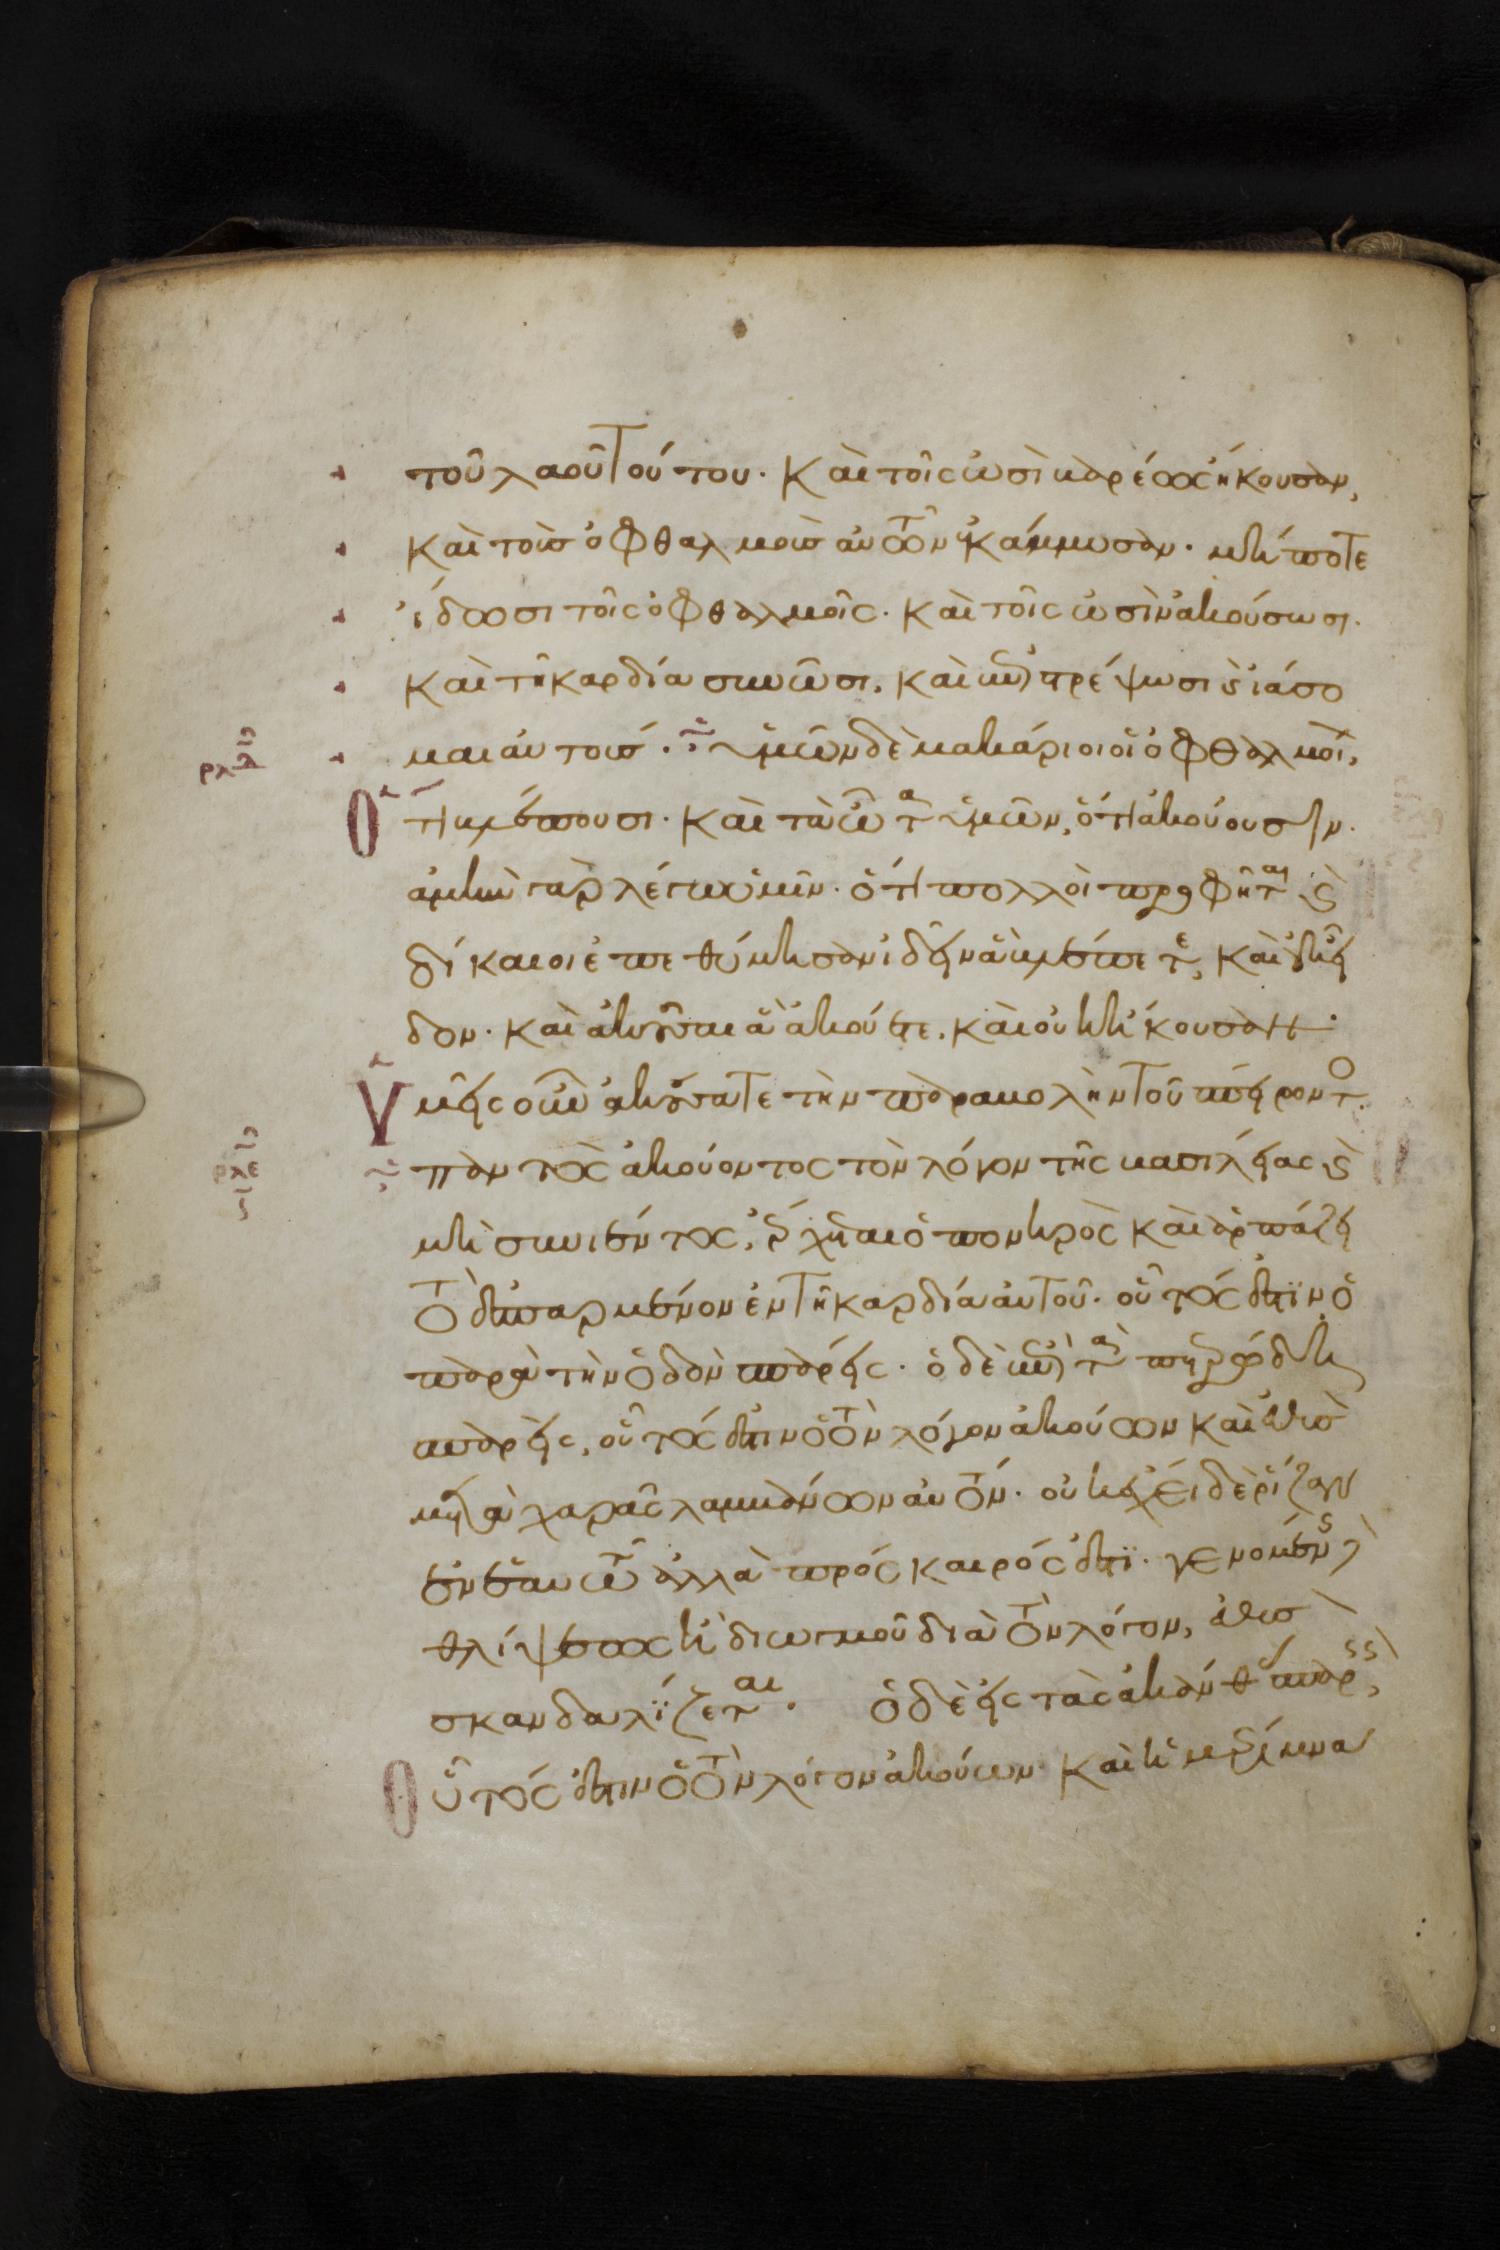 τοῦ λαοῦ τούτου. Καὶ τοῖς ὠσὶ βαρέως ἤκουσαν,
Καὶ τοὺς ὀφθαλμοὺς αὐτῶν ἐκάμμυσαν. μήποτε
ἴδωσι τοῖς ὀφθαλμοῖς. Καὶ τοῖς ὠσὶν ἀκούσωσι.
Καὶ τῆ καρδία συνῶσι. Καὶ ἐπιστρέψωσι ϗ ἰάσο
μαι αὐτούς. ὑμῶν δὲ μακάριοι οἱ ὀφθαλμοί,
ρλδ
Ὅτι βλέπουσι. Καὶ τὰ ὦτα ὑμῶν, ὅτι ἀκούουσιν.
ἀμὴν γὰρ λέγω ὑμῖν. ὅτι πολλοὶ προφῆται ϗ
δίκαιοι ἐπεθύμησαν ἰδεῖν ἃ βλέπετε, Καὶ οὐκ εἶ
δον. Καὶ ἀκοῦσαι ἃ ἀκούετε. καὶ οὐκ ἤκουσαν.
Ὑμεῖς οὖν ἀκούσατε τὴν παραβολὴν τοῦ σπείροντο
ρλε
παντὸς ἀκούοντος τὸν λόγον τῆς βασιλείας ϗ
μὴ συνιέντος, ἔρχεται ὁ πονηρὸς Καὶ ἁρπάζει
τὸ ἐσπαρμένον ἐν τῆ καρδία αὐτοῦ. οὗτός ἐστιν ὁ
παρὰ τὴν ὁδὸν σπαρείς. ὁ δὲ ἐπὶ τὰ πετρώδη
σπαρεὶς, οὗτός ἐστιν ὁ τὸν λόγον ἀκούων Καὶ εὐθὺς
μετὰ χαρᾶς λαμβάνων αὐτόν. οὐκ ἔχει δὲ ῥίζαν
ἐν ἑαυτῶ ἀλλὰ πρόσκαιρός ἐστι. γενομένης
θλίψεως ἢ διωγμοῦ διὰ τὸν λόγον, εὐθὺς
σκανδαλίζεται. ὁ δὲ εἰς τὰς ἀκάνθ σπαρ,
Οὗτός ἐστιν ὁ τὸν λόγον ἀκούων. Καὶ ἡ μέριμνα